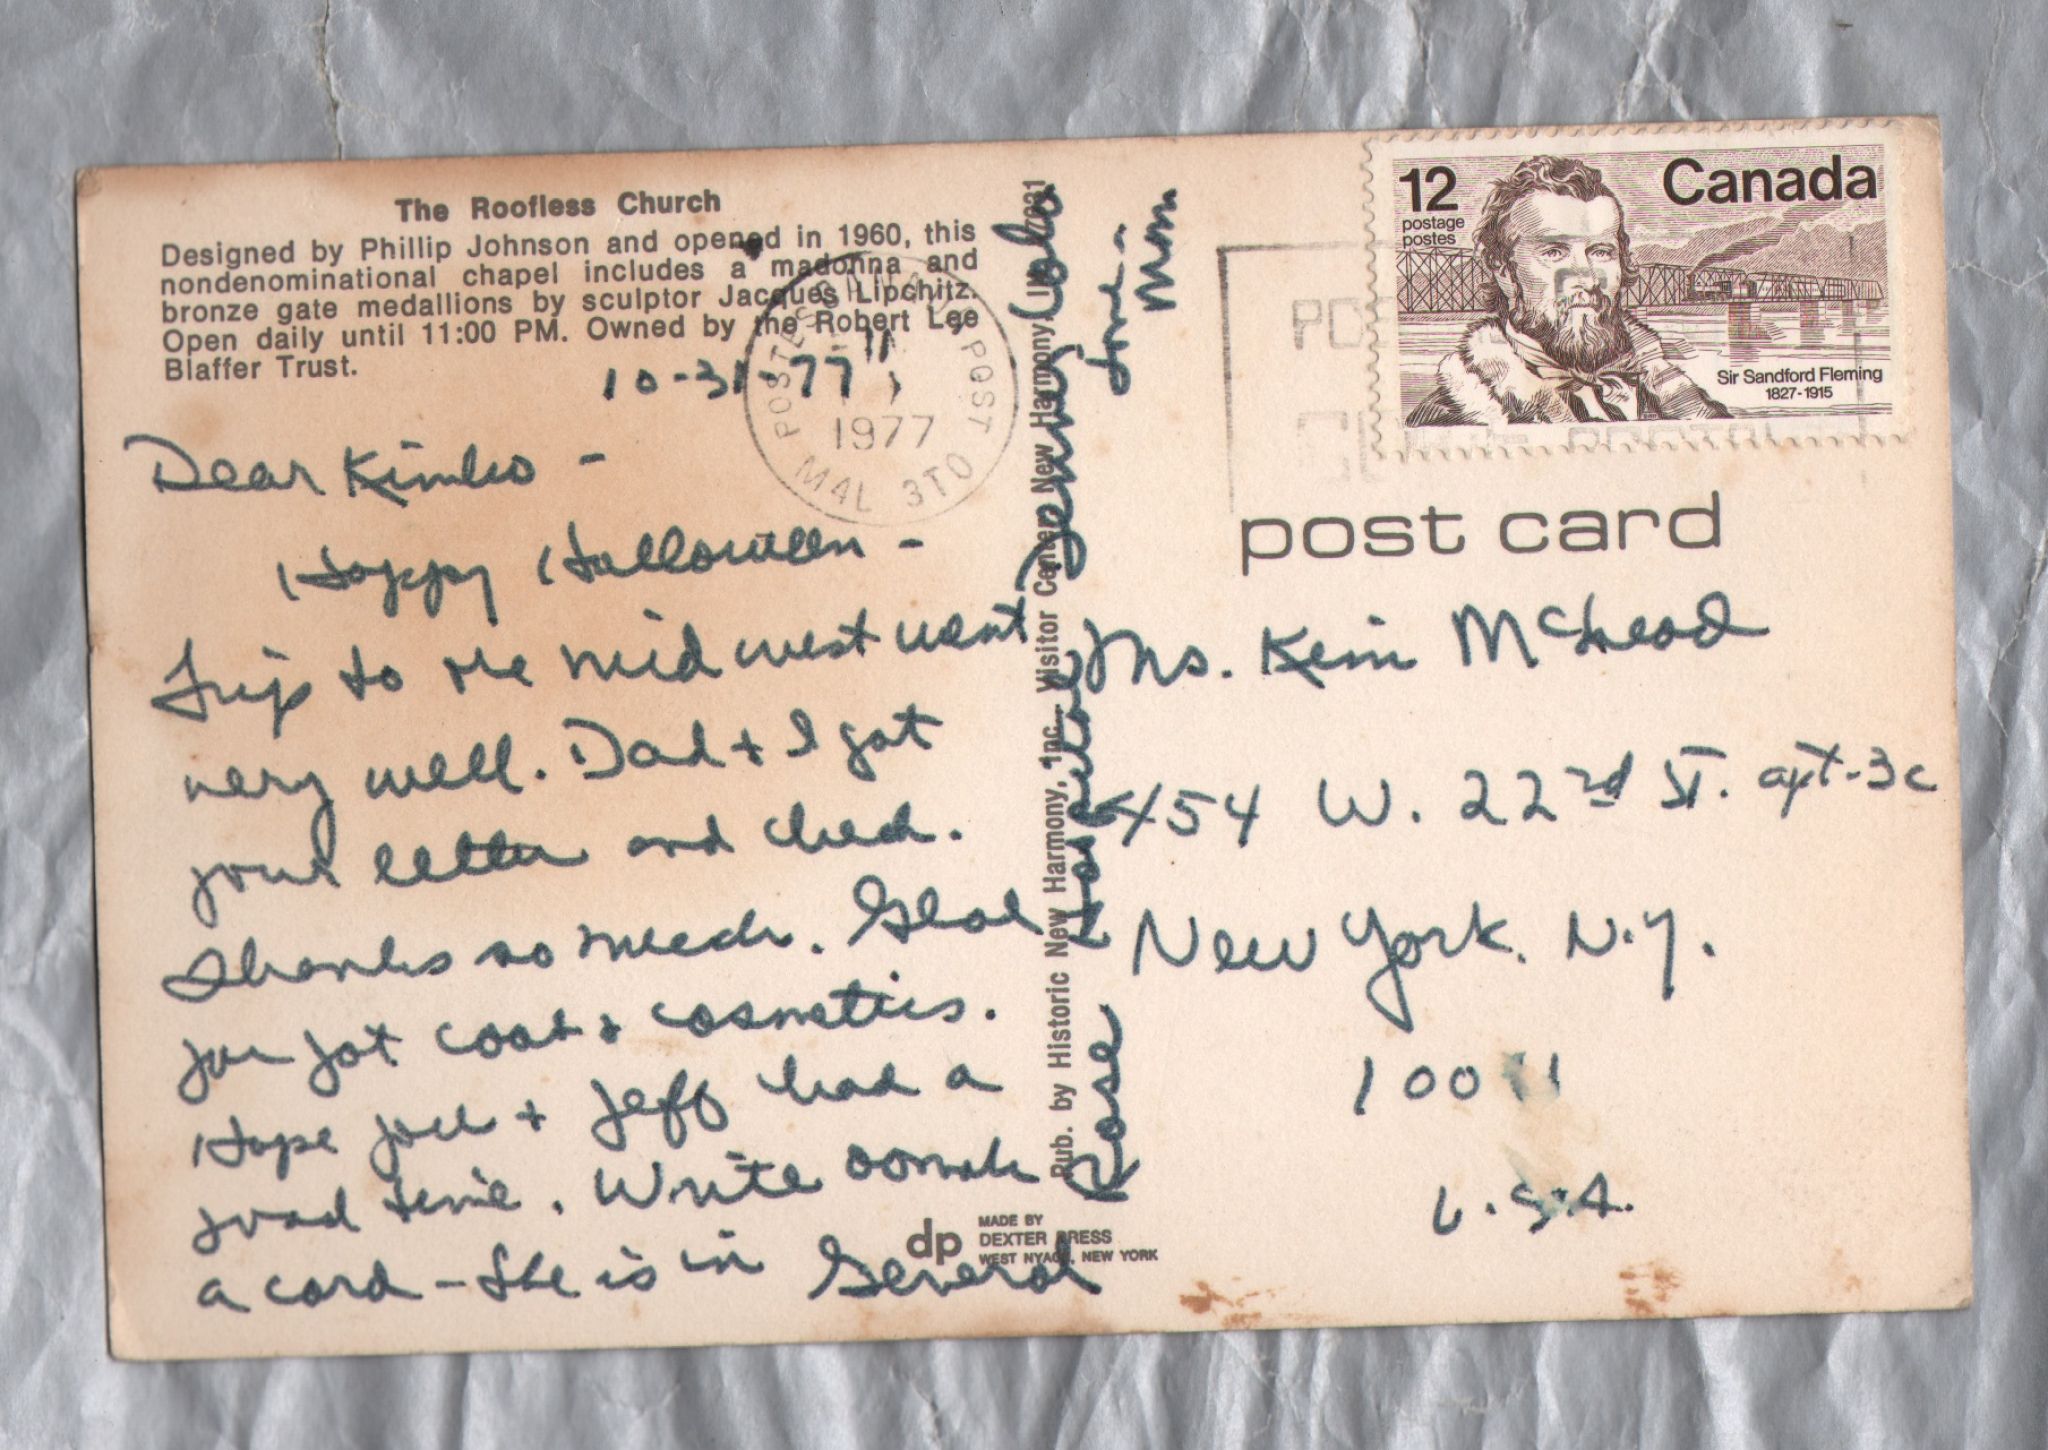 The Roofless Church
Designed by Phillip Johnson and opened in 1960, this
nondenominational chapel includes a madonna and
bronze gate medallions by sculptor Jacques Lipchitz.
Open daily until 11:00 PM. Owned by the Robert Lee
Blaffer Trust.
10-31-77
Dear Kimbo -
Happy Halloween -
Trip to the mid west went
very well. Dad + I got
your letter and check.
Thanks so much. Glad
you got coat + cosmetics.
Hope you + Jeff had a
good time. Write
a card - She is in General
Hospital
Rose
Love -
Mom
Pub. by Historic New Harmony, Inc., Visitor Center, New Harmony, IN 47631
dp
MADE BY
DEXTER PRESS
WEST NYACK, NEW YORK
POSTES CANADA POST
1977
M4L 3T0
12
postage
postes
Canada
Sir Sandford Fleming
1827-1915
post card
Ms. Kim McLeod
454 W. 22nd St. apt-3c
New York. N.Y.
10011
U.S.A.